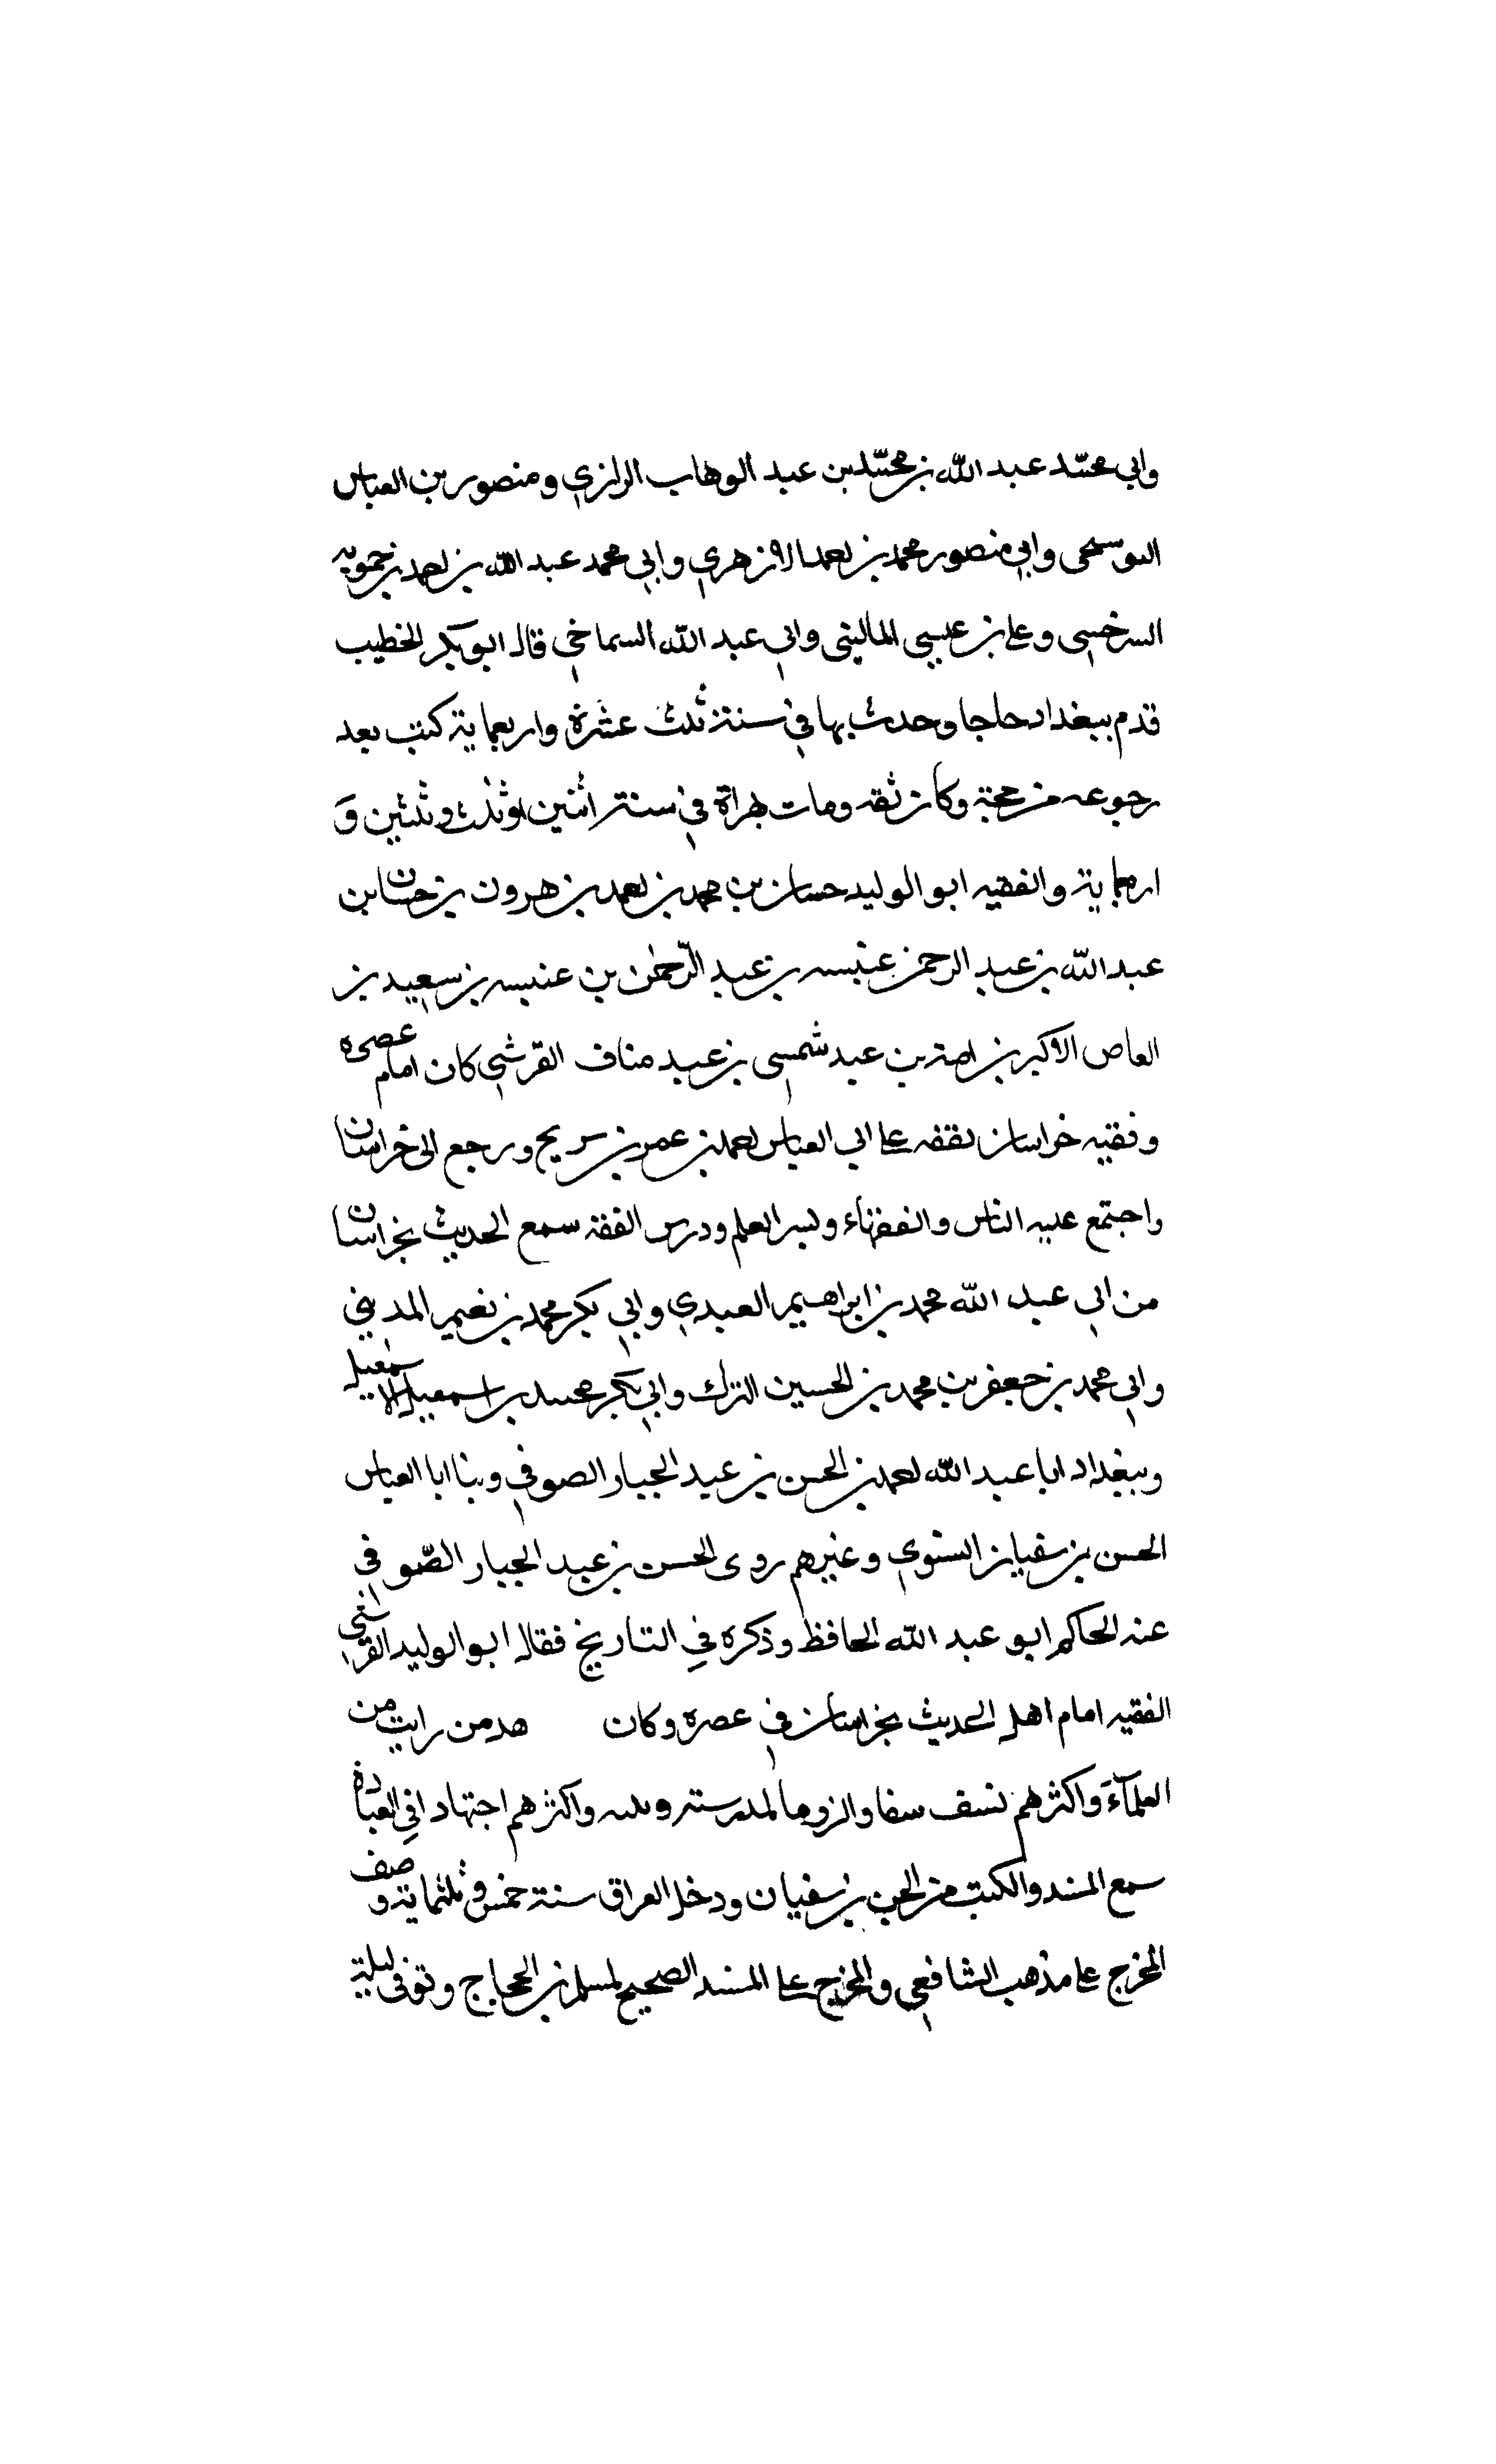 وابي محمد عبد الله بن محمد بن عبد الوهاب الرازي ومنصور بن العباس
البوسنجي وابي منصور محمد بن احمد الازهري وابي محمد عبد الله بن احمد بن حمويه
السرخسي وعلي بن عيسي الماليني وابي عبد الله السماخي قال ابو بكر الخطيب
قدم ببغداد حاجا وحدث بها في سنة ثلث عشرة واربعماية كتب بعد
رجوعه من حجة وكان ثقه ومات بهراة في سنة اثنين اوثلث وثلثين و
اربعماية والفقيه ابو الوليد حسان بن محمد بن احمد بن هرون بن حسان بن
عبد الله بن عبد الرحمن عنبسه بن عبد الرحمن بن عنبسه بن سعيد بن
العاص الاكبر بن امية بن عبد شمسي بن عبد مناف القرشي كان امام عصره
وفقيه خراسان تفقه علي ابي العباس احمد بن عمر بن سريج ورجع الى خراسان
واجتمع عليه الناس والفقهاء ونسر العلم ودرس الفقه سمع الحديث بخراسان
من ابي عبد الله محمد بن ابراهيم العبدي وابي بكر محمد بن نعيم المديني
وابي محمد بن جعفر بن محمد بن الحسين الترك وابي بكر محمد بن اسمعيل الاسمعيلي
وببغداد ابا عبد الله احمد بن الحسن بن عبد الجبار الصوفي وبنا ابا العباس
الحسن بن سفيان النسوي وغيرهم روى الحسن بن عبد الجبار الصّوفي
عنه الحاكم ابو عبد الله الحافظ وذكره في التاريخ فقال ابو الوليد القرشي
الفقيه امام اهل الحديث بخراسان في عصره وكان هد من رايت من
العلمآء واكثرهم تسف والزوما لمدرسته واكثرهم اجتهادا في العبادة
سمع المسند والكتب من الحسن بن سفيان ودخل العراق سنة خمس وثلثماية وصف
المخرج علي مذهب الشافعي والمخرج علي المسند الصحيح لمسلم بن الحجاج وتوفي ليلة